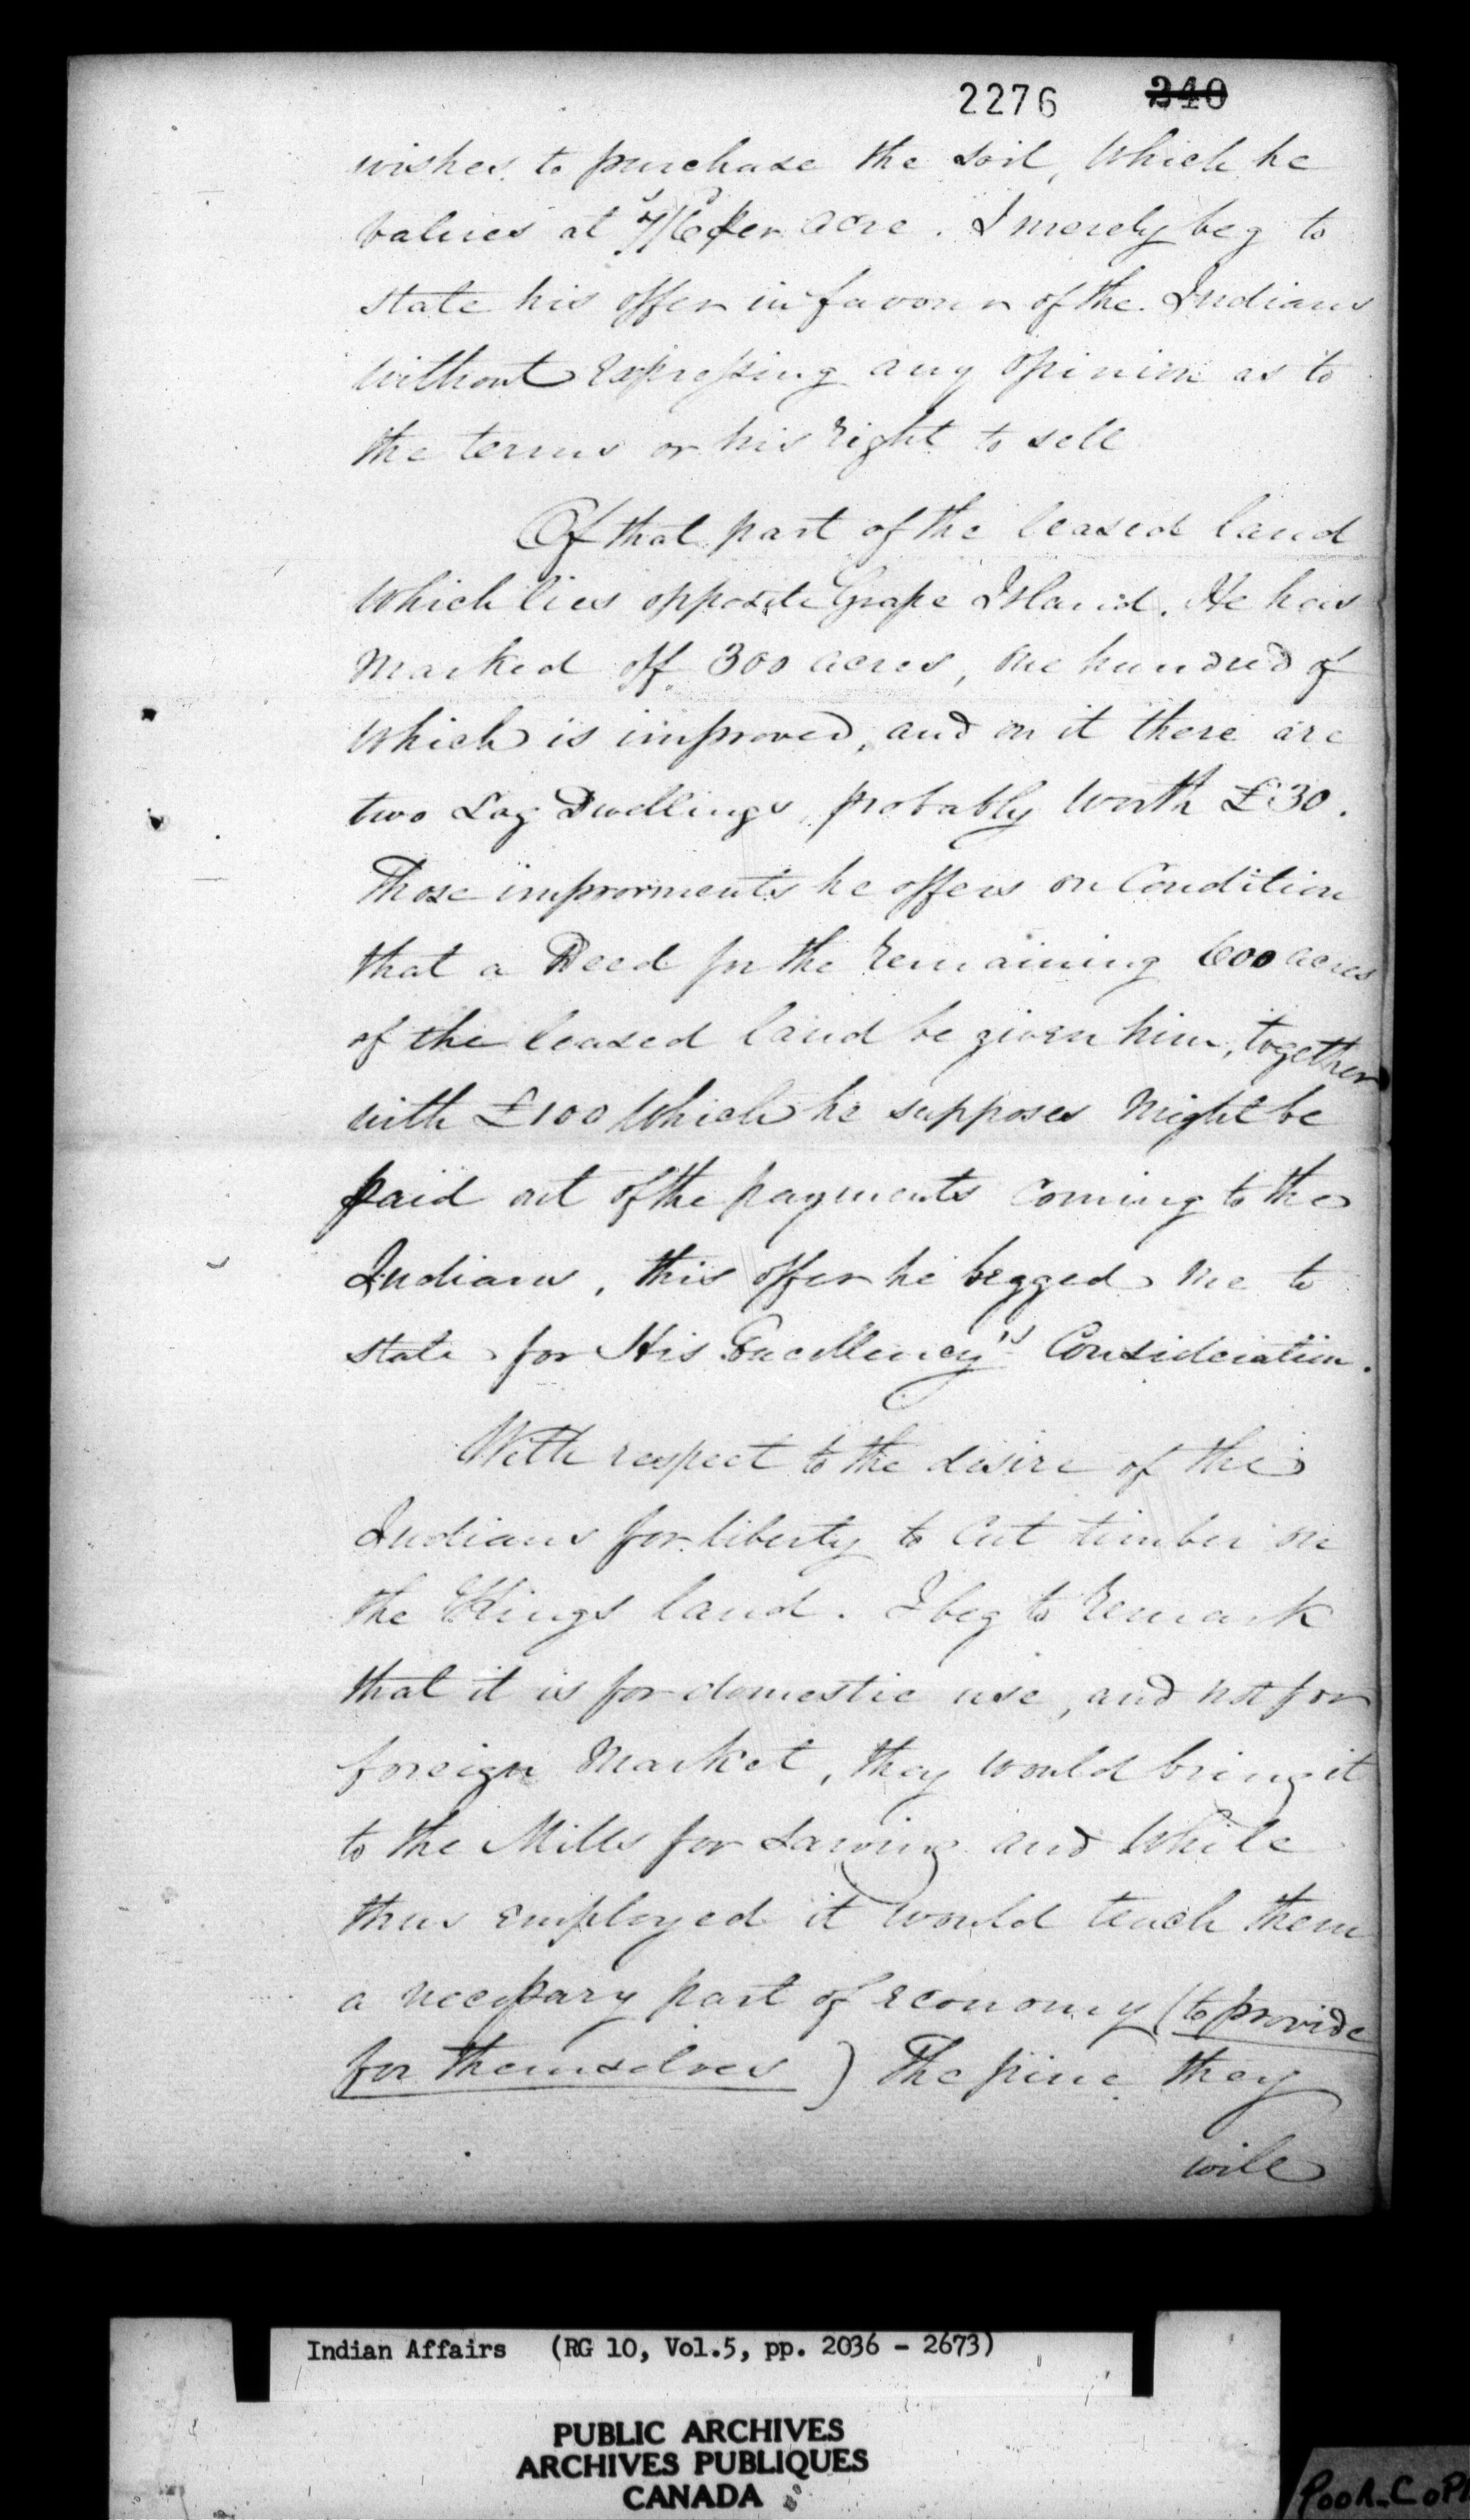 2276 240
wishes to purchase the soil, which he
values at 7/6 per acre. I merely beg to
state his offer in favour of the Indians
without expressing any opinion as to
the terms or his right to sell
Of that part of the leased land
which lies opposite Grape Island. He has
Marked off 300 acres, one hundred of
which is improved, and on it there are
two Log Dwellings, probably worth £30.
Those improvments he offers on Condition
that a Deed for the remaining 600 acres
of the leased land be given him, together
with £100 Which he supposes Might be
paid out of the payments coming to the
Indians, this offer he begged me to
state for His Excellency's Consideration.
With respect to the desire of the
Indians for liberty to cut timber on
the Kings land. I beg to remark
that it is for domestic use, and not for
foreign Market, they would bring it
to the Mills for sawing and While
thus employed it would teach them
a necessary part of economy (to provide
for themselves) The pine they
will
Indian Affairs (RG 10, Vol.5, pp. 2036 - 2673)
PUBLIC ARCHIVES
ARCHIVES PUBLIQUES
CANADA